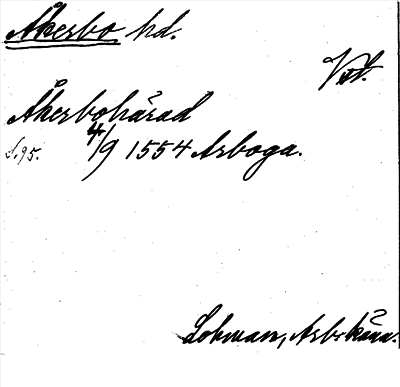 Åkerbo hd.
Vstl.
Åkerbohärad
S.95. 4/9 1554 Arboga.
Lohman, Arb. känn.